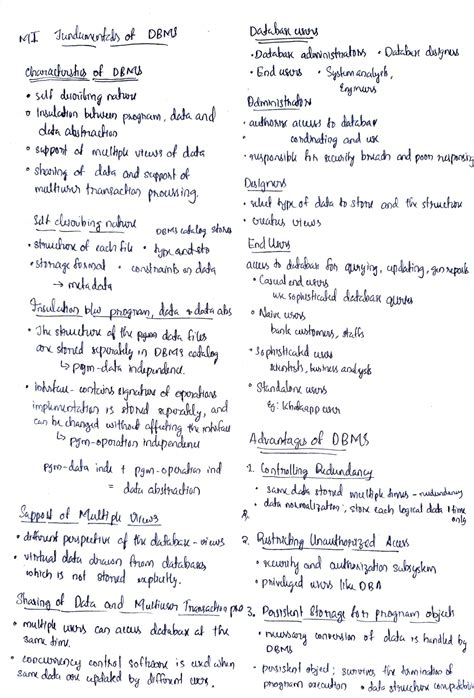 M1 Fundamentals of DBMS
Characteristics of DBMS
• self describing nature
• Insulation between program, data and
data abstraction
• support of multiple views of data
• sharing of data and support of
multiuser transaction processing.
Self describing nature
DBMS catalog stores
• structure of each file • type and sto
• storage format • constraints on data
→ metadata
Insulation b/w program, data & data abs
• The structure of the pgm data files
are stored separately in DBMS catalog
↳ pgm-data independence.
• interface - contains signature of operations
implementation is stored separately, and
can be changed without affecting the interface
↳ pgm-operation independence
pgm-data inde + pgm-operation ind
= data abstraction
Support of Multiple Views
• different perspective of the database - views
• virtual data drawn from databases
which is not stored explicitly.
Sharing of Data and Multiuser Transaction pro
• multiple users can access database at the
same time.
• concurrency control software is used when
same data are updated by different users.
Database users
• Database administrators • Database designers
• End users • System analysts,
Engineers
Administrators
• authorize access to database
• cordinating and use
• responsible for security breach and poor response
Designers
• select type of data to store and the structure
• creates views
End Users
access to database for querying, updating, gen reports
• Casual end users
use sophisticated database queries
• Naive users
bank customers, staffs
• Sophisticated users
scientists, business analysts
• Standalone users
Eg:
user
Advantages of DBMS
1. Controlling Redundancy
• same data stored multiple times - redundancy
• data normalization; store each logical data 1 time
only
2. Restricting Unauthorized Access
• security and authorization subsystem
• priviledged users like DBA
3. Persistent Storage for program objects
• necessary conversion of data is handled by
DBMS
• persistent object; survives the termination of
program execution • data structure